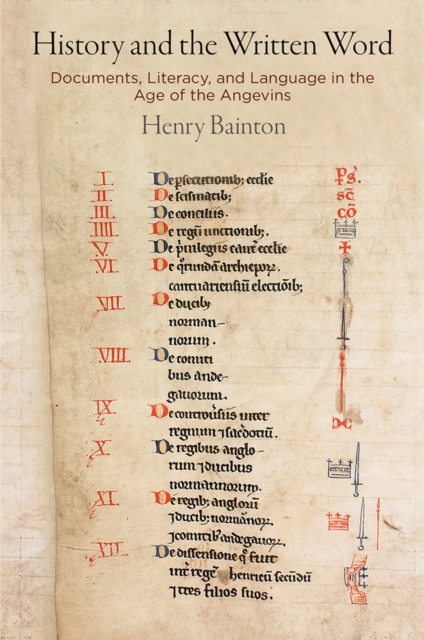 History and the Written Word
Documents, Literacy, and Language in the
Age of the Angevins
Henry Bainton
I De psecutionib; ecclie ps.
II De scismatib; sc̄
III. De conciliis. cō
IIII. De regū unctionib;.
V. De p̄uilegiis cant̄ ecclie
VI De qrundā archiepoꝝ.
cantuariensiū electiōib;
VII De ducib;
norman-
norum.
VIII. De comiti
bus ande-
gauorum.
IX De cont͛ouͥsiis inter
regnum ⁊ sac̄dotiū.
X. De regibus anglo-
rum ⁊ ducibus
normannorum.
XI De regib; anglorū
⁊ ducib; normānoꝝ.
⁊ comitib' andegauoꝝ.
XII De dissensione q̄ fuit
int̄ regē henricū secūdū
⁊ tres filios suos.